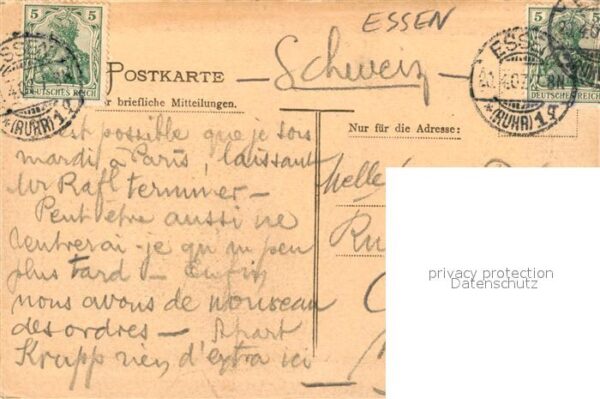 ESSEN
5
DEUTSCHES REICH
ESSEN
*(RUHR)1
POSTKARTE
Schweiz
5
DEUTSCHES REICH
ESSEN
*(RUHR)1
r briefliche Mitteilungen.
Nur für die Adresse:
est possible que je sois
mardi à Paris, laissant
Mr Rafl terminer –
Peut être aussi ne
rentrerai-je qu'un peu
plus tard – Enfin
nous avons de nouveau
des ordres – Apart
Krupp rien d'extra ici
Melle
Ru
privacy protection
Datenschutz